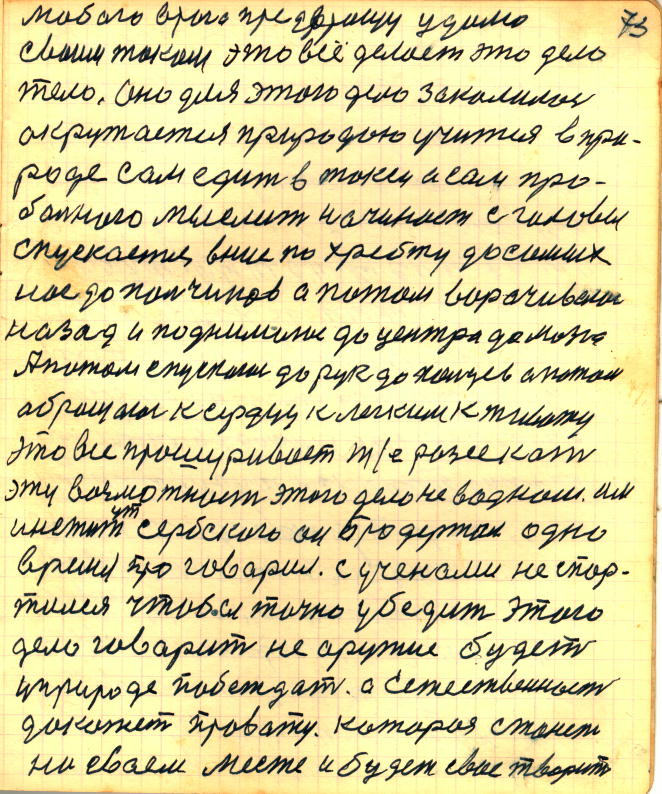 любого врага предвращу удома
своим током это всё делает это дело
тело. Оно для этого дела закалилось
окрутается природою учится в при-
роде сам сидит в токси и сам про-
больного мыслит начинает с головы
спускается, вние по хребту до самих
ног до полчиков а потом ворачивался
назад и поднимался до центра до мозга
А потом спускался до рук до концев а потом
обращался к сердцу к легким к животу
это все прошуривает т/е розсекат
эту возмотност этого дела не в одном. он
институт Сербского он продержал одно
время про говорил. с учеными не спор-
тился чтобы точно убедит этого
дело говорит не оружие будет
у природе побеждат. а Естественност
докажет провоту. которая станет
на своем месте и будет свое творит
73